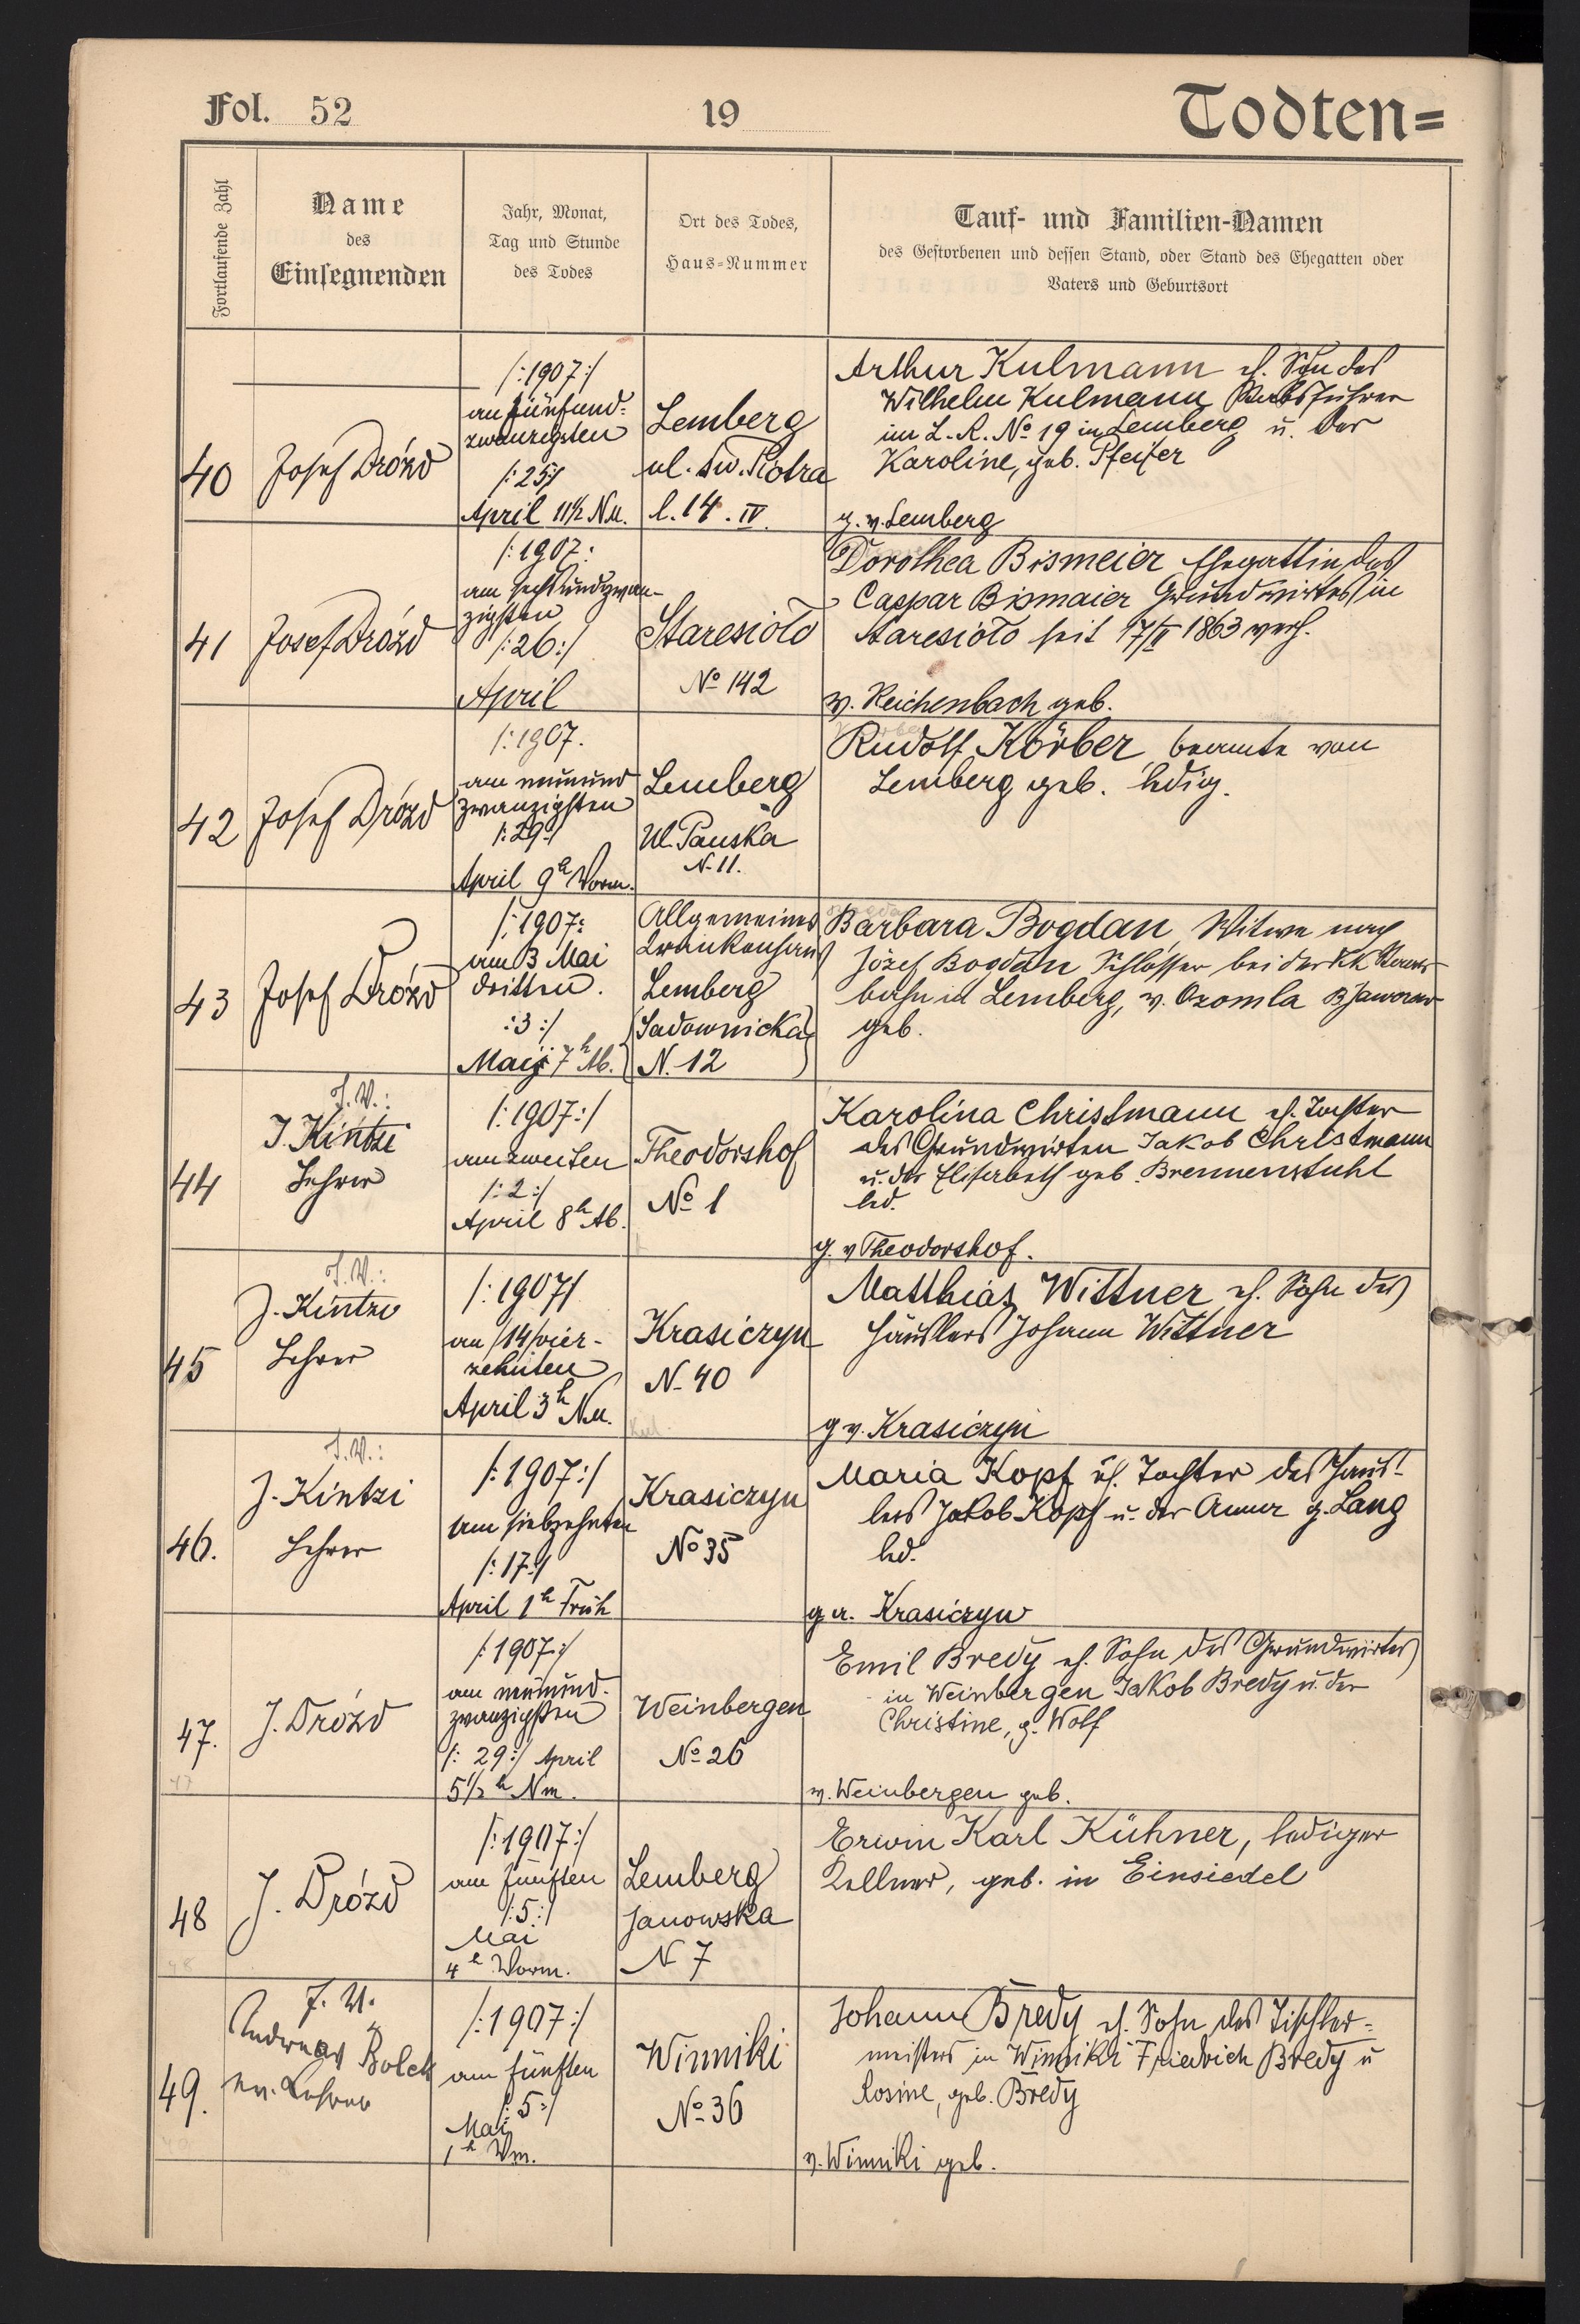 Fol. 52
19
Todten=
Fortlaufende Zahl
Name
des
Einsegnenden
Jahr, Monat,
Tag und Stunde
des Todes
Ort des Todes,
Haus-Nummer
Tauf- und Familien-Namen
des Gestorbenen und dessen Stand, oder Stand des Ehegatten oder
Vaters und Geburtsort
40
Josef Drózd
/:1907:/
am fünfund-
zwanzigsten
/:25:/
April 11½ Nm.
Lemberg
ul. Św. Piotra
l. 14. IV.
Arthur Kulmann eh. Sohn des
Wilhelm Kulmann
im L. R. No 19 in Lemberg u. der
Karoline, geb. Pfeifer
g. v. Lemberg
41
Josef Drózd
/:1907:
am sechsundzwan-
zigsten
/:26:/
April
Staresioło
No 142
Dorothea Bismeier Ehegattin des
Caspar Bismaier Grundwirtes in
Staresioło seit 17/II 1863 verh.
v. Reichenbach geb.
42
Josef Drózd
/:1907.
am neunund
zwanzigsten
/:29:/
April 9h Vorm.
Lemberg
Ul. Pańska
N. 11.
Rudolf Körber, beamte von
Lemberg geb. ledig.
43
Josef Drózd
/:1907:
am 3 Mai
dritten.
:3:/
Mai 7h Ab.
Allgemeines
Krankenhaus
Lemberg
(Sadownicka)
N. 12
Barbara Bogdan, Witwe nach
Józef Bogdan Schlosser bei der kk Staats-
bahn in Lemberg, v. Ozomla B Jaworow
geb.
44
I. V.:
J. Kintzi
Lehrer
/:1907:/
am zweiten
/:2:/
April 8h Ab.
Theodorshof
No 1
Karolina Christmann eh. Tochter
des Grundwirten Jakob Christmann
u. der Elisabeth geb. Brennenstuhl
led.
g. v Theodorshof.
45
I. V.:
J. Kintzi
Lehrer
/:1907/
am /14/ vier-
zehnten
April 3h Nm.
Krasiczyn
N. 40
Matthias Wittner eh. Sohn des
Häuslers Johann Wittner
g v. Krasiczyn
46.
I. V.:
J. Kintzi
Lehrer
/:1907:/
am siebzehnten
/:17:/
April 1h Früh
Krasiczyn
No 35
Maria Kopf eh. Tochter des Häus-
lers Jakob Kopf u. der Anna g. Lang
led.
g. a. Krasiczyn
47.
J. Drózd
/:1907:/
am neunund-
zwanzigsten
/:29:/ April
5½ h Nm.
Weinbergen
No 26
Emil Bredy eh. Sohn des Grundwirtes
in Weinbergen Jakob Bredy u. der
Christine, g. Wolf
v. Weinbergen geb.
48
J. Drózd
/:1907:/
am fünften
/:5:/
Mai
4h Vorm.
Lemberg
Janowska
N 7
Erwin Karl Kühner, lediger
Kellner, geb. in Einsiedel
49.
I. V.
Andreas Bolek
ev. Lehrer
/:1907:/
am fünften
/:5:/
Mai
1h Vm.
Winniki
No 36
Johann Bredy eh. Sohn des Tischler-
meisters in Winniki Friedrich Bredy u
Rosine, geb. Bredy
v. Winniki geb.